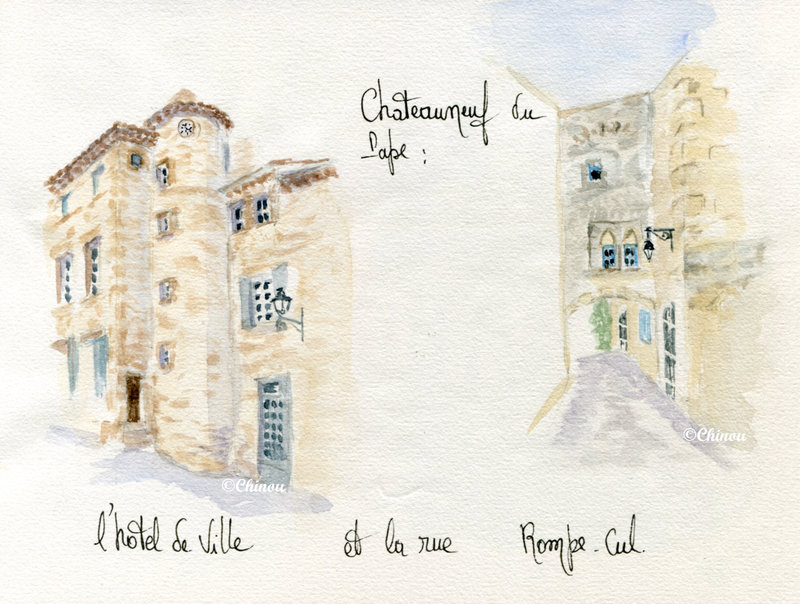 Chateauneuf du
Pape :
©Chinou
©Chinou
l'hôtel de Ville et la rue Rompe-Cul.